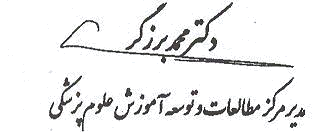 دکتر محمد برزگر
مدیر مرکز مطالعات و توسعه آموزش علوم پزشکی